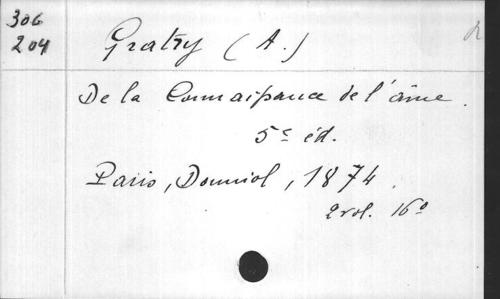 306
204
Gratry (A.)
De la Connaissance de l'âme.
5e éd.
Paris, Douniol, 1874.
2 vol. 16°